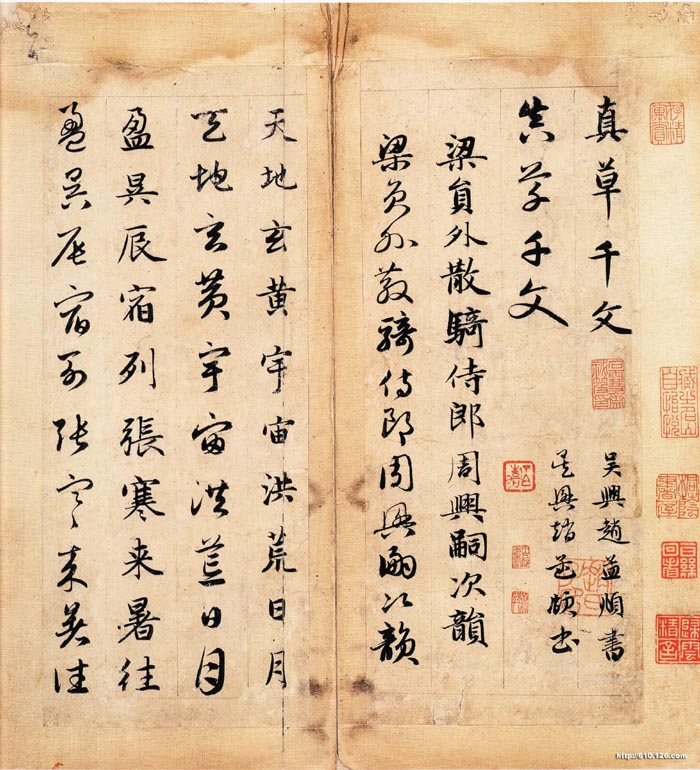 真草千文 吳興趙孟頫書
真草千文 吳興趙孟頫書
梁員外散騎侍郎周興嗣次韻
梁員外散騎侍郎周興嗣次韻
天地玄黃宇宙洪荒日月
天地玄黃宇宙洪荒日月
盈昃辰宿列張寒来暑往
盈昃辰宿列張寒来暑往
http://610.126.com